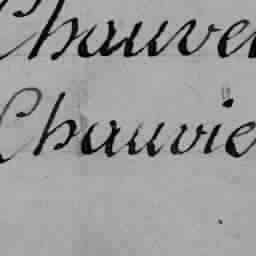 Chauve
Chauvie